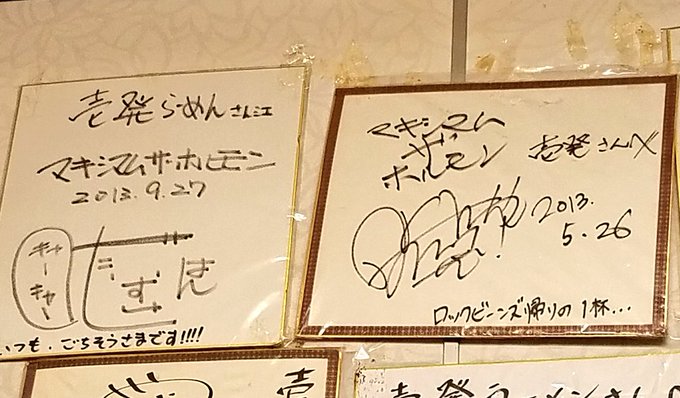 壱発らーめんさん江
マキシマムザ・ホルモン
2013.9.27
キャーキャー
だいすけはん
いつも、ごちそうさまです!!!!
マキシマム
ザ
ホルモン
壱発さんへ
2013.
5.26
ロックビーンズ帰りの1杯...
壱
壱発ラーメンさん